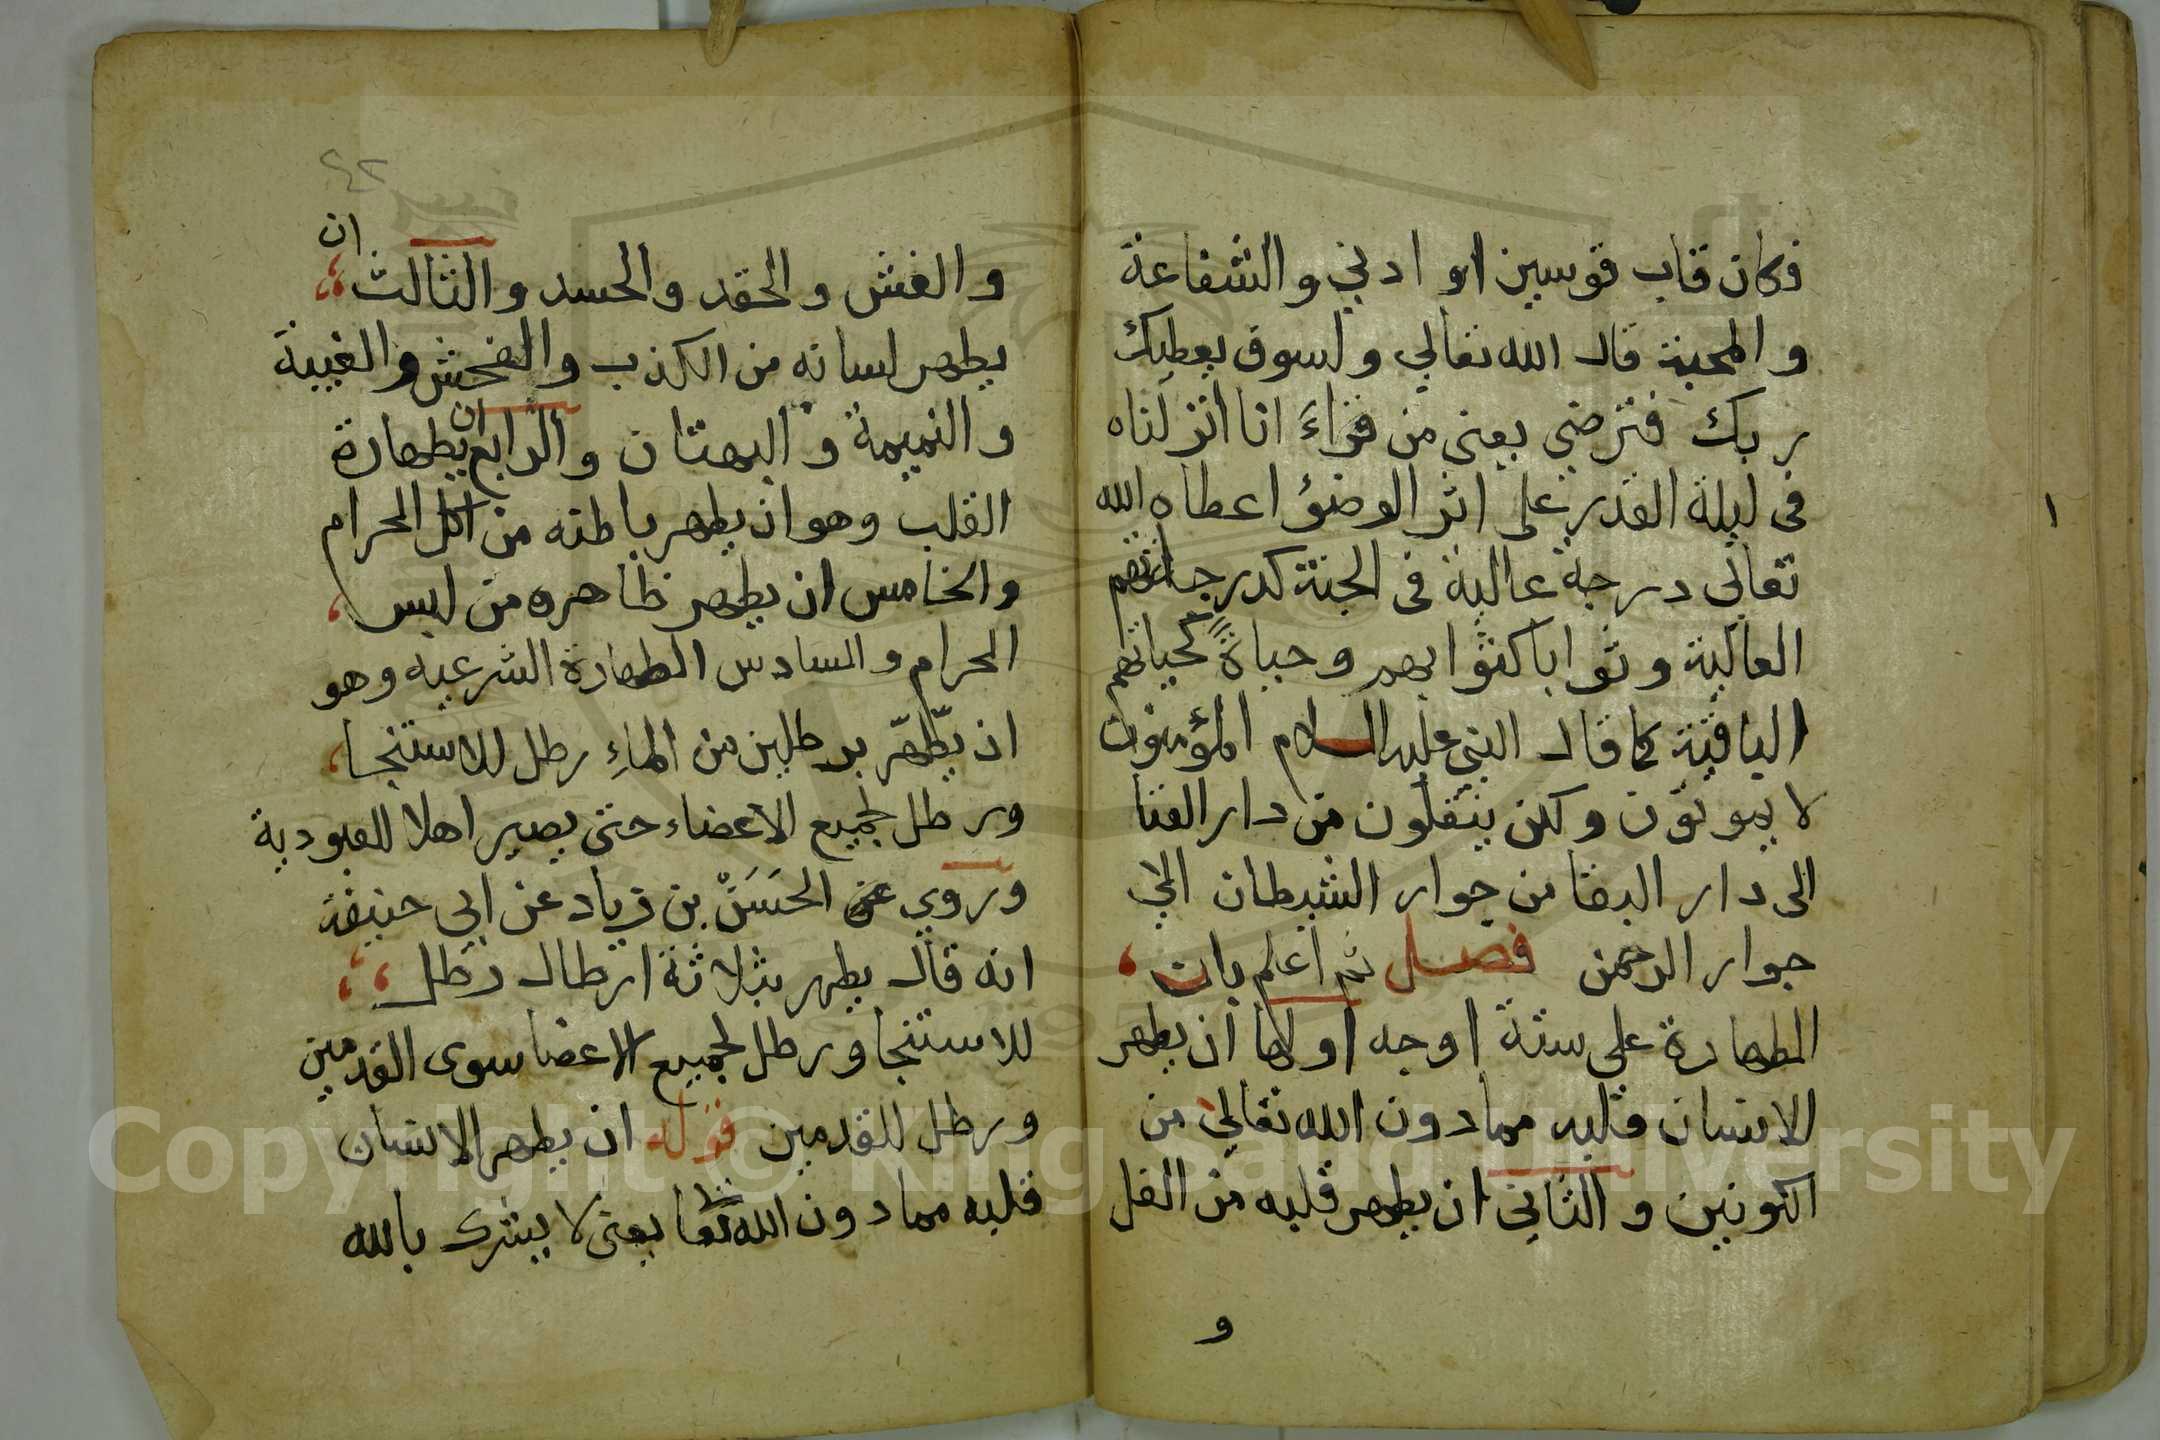 فكان قاب قوسين او ادني والشفاعة
والمحبة قال الله تعالي ولسوف يعطيك
ربك فترضي يعني من قراءَ انا انزلناه
فى ليلة القدر على اثر الوضؤ اعطاه الله
تعالي درجة عالية فى الجنة كدرجاتهم
العالية وثوابا كثوابهم وحياةً كحياتهم
الباقية كما قال النبي عليه السلام المؤمنون
لا يموتون ولكن ينتقلون من دار الفنا
الى دار البقا من جوار الشيطان الي
جوار الرحمن فصل ثم اعلم بان
الطهارة على ستة اوجه اولها ان يطهر
الانسان قلبه مما دون الله تعالي من
الكونين والثاني ان يطهر قلبه من الغل
و
٤٢
والغش والحقد والحسد والثالث ان
يطهر لسانه من الكذب والفحش والغيبة
والنميمة والبهتان والرابع ان يطهارة
القلب وهو ان يطهر باطنه من اكل الحرام
والخامس ان يطهر ظاهره من لبس
الحرام والسادس الطهارة الشرعيه وهو
ان يطّهّر برطلين من الماءِ رطل للاستنجا
ورطل لجميع الاعضاء حتى يصير اهلا للعبودية
وروي عن الحَسَنْ بن زياد عن ابي حنيفة
انه قال يطهر بثلاثة ارطال رطل
للاستنجا ورطل لجميع الاعضا سوى القدمين
ورطل للقدمين قوله ان يطهر الانسان
قلبه مما دون الله تعا يعنى لا يشرك بالله
١
Copyright © King Saud University